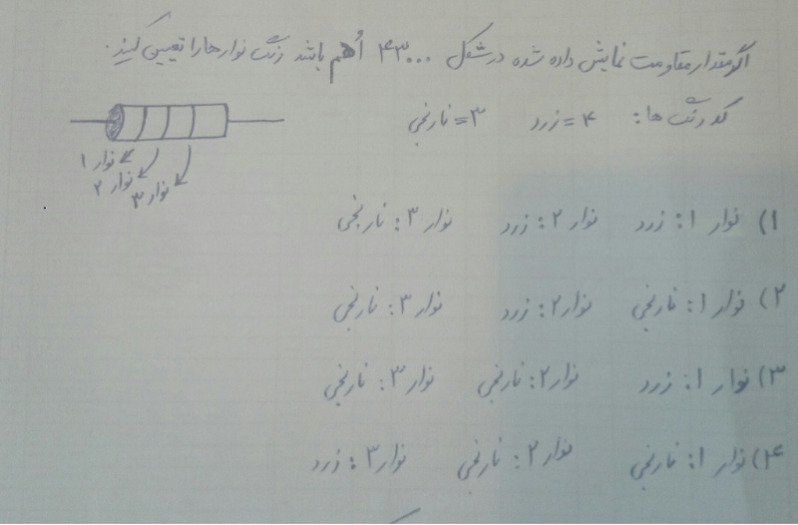 اگر مقدار مقاومت نمایش داده شده در شکل ۴۳۰۰۰ اُهم باشد رنگ نوارها را تعیین کنید.
کد رنگ ها: ۴=زرد ۳=نارنجی
نوار ۱
نوار ۲
نوار ۳
۱) نوار ۱: زرد نوار ۲: زرد نوار ۳: نارنجی
۲) نوار ۱: نارنجی نوار ۲: زرد نوار ۳: نارنجی
۳) نوار ۱: زرد نوار ۲: نارنجی نوار ۳: نارنجی
۴) نوار ۱: نارنجی نوار ۲: نارنجی نوار ۳: زرد